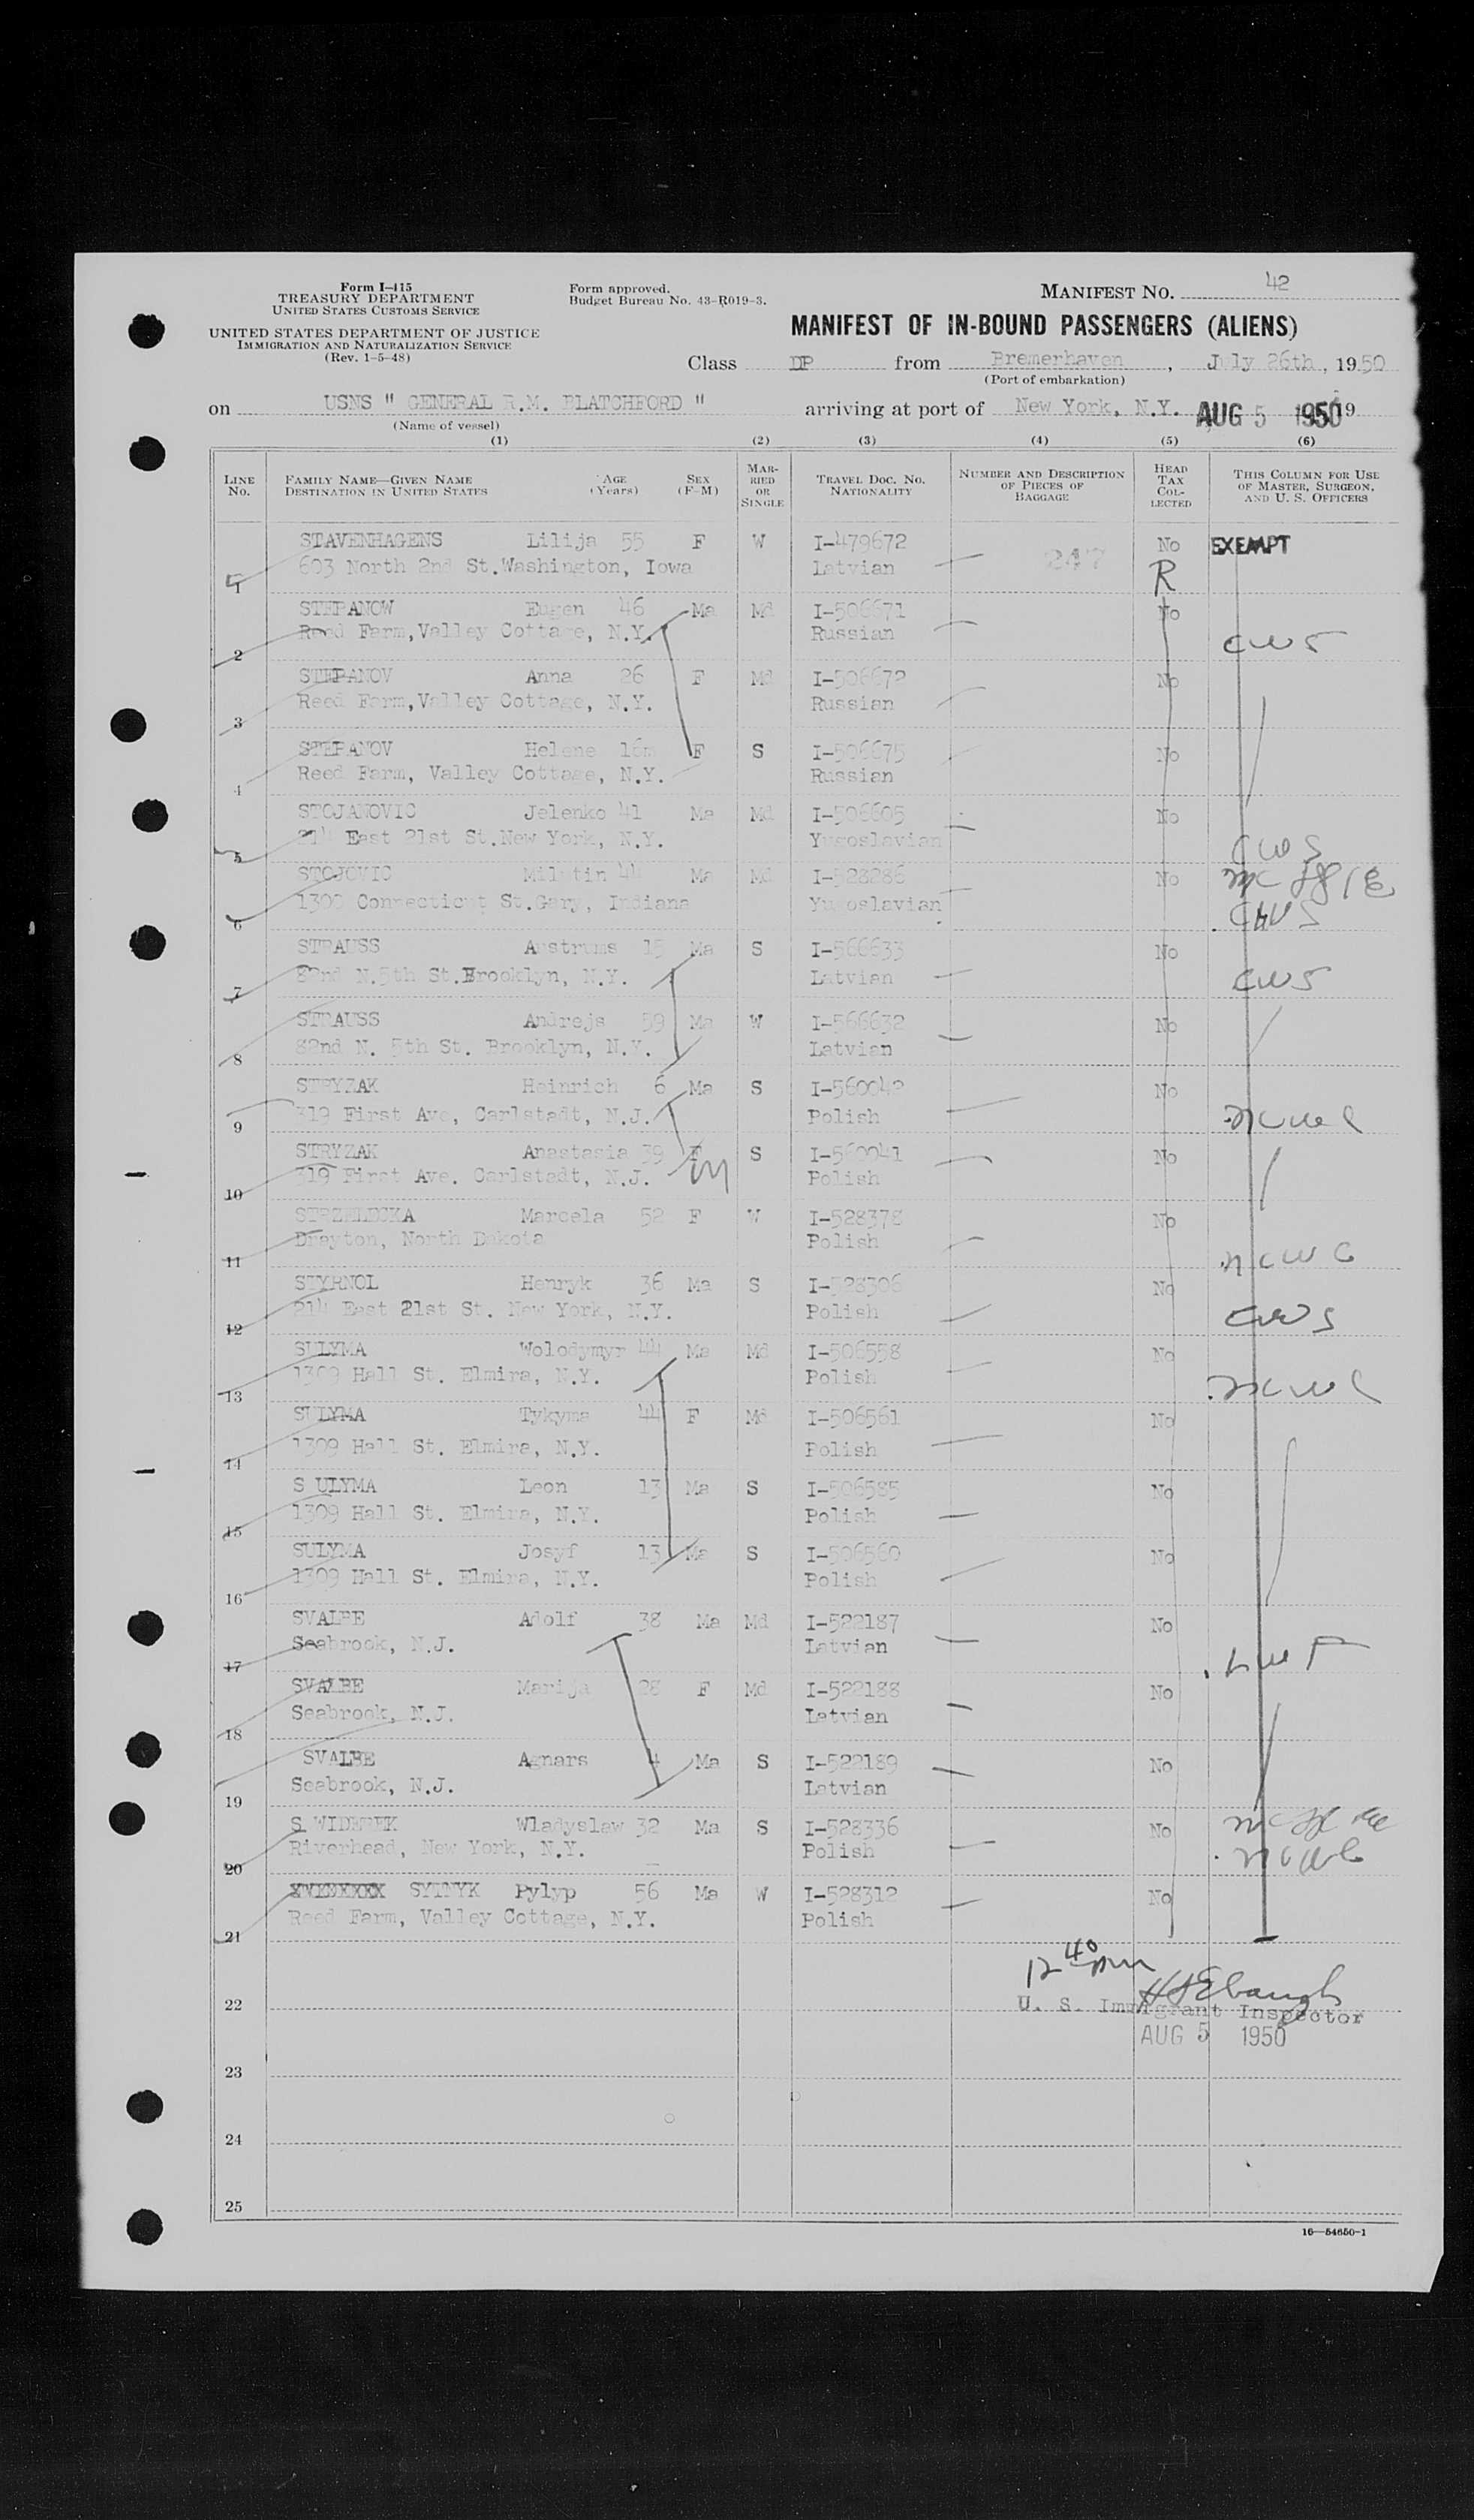 Form I-415
TREASURY DEPARTMENT
UNITED STATES CUSTOMS SERVICE
UNITED STATES DEPARTMENT OF JUSTICE
IMMIGRATION AND NATURALIZATION SERVICE
(Rev. 1-5-48)
Form approved.
Budget Bureau No. 43-R019-3.
MANIFEST NO. 42
MANIFEST OF IN-BOUND PASSENGERS (ALIENS)
Class DP from Bremerhaven, July 26th, 1950
(Port of embarkation)
on USNS " GENERAL R.M. BLATCHFORD " arriving at port of New York, N.Y. AUG 5 1950 19
(Name of vessel)
(1) (2) (3) (4) (5) (6)
LINE No. FAMILY NAME—GIVEN NAME DESTINATION IN UNITED STATES AGE (Years) SEX (F-M) MARRIED OR SINGLE TRAVEL DOC. NO. NATIONALITY NUMBER AND DESCRIPTION OF PIECES OF BAGGAGE HEAD TAX COLLECTED THIS COLUMN FOR USE OF MASTER, SURGEON, AND U. S. OFFICERS
STAVENHAGENS Lilija 55 F W I-479672 No EXEMPT
1 603 North 2nd St.Washington, Iowa Latvian 247 R
STEPANOW Eugen 46 Ma Md I-506671 No
2 Reed Farm,Valley Cottage, N.Y. Russian CWS
STEPANOV Anna 26 F Md I-506672 No
3 Reed Farm,Valley Cottage, N.Y. Russian
STEPANOV Helene 16m F S I-506675 No
4 Reed Farm, Valley Cottage, N.Y. Russian
STOJANOVIC Jelenko 41 Ma Md I-506605 No
5 214 East 21st St.New York, N.Y. Yugoslavian CWS
STOJOVIC Milutin 44 Ma Md I-528286 No
6 1309 Connecticut St.Gary, Indiana Yugoslavian CWS
STRAUSS Austrums 15 Ma S I-566633 No
7 82nd N.5th St.Brooklyn, N.Y. Latvian CWS
STRAUSS Andrejs 59 Ma W I-566632 No
8 82nd N. 5th St. Brooklyn, N.Y. Latvian
STRYZAK Heinrich 6 Ma S I-560042 No
9 319 First Ave, Carlstadt, N.J. Polish NCWC
STRYZAK Anastasia 39 F S I-560041 No
10 319 First Ave. Carlstadt, N.J. Polish
STRZELECKA Marcela 52 F W I-528378 No
11 Drayton, North Dakota Polish NCWC
STYRNOL Henryk 36 Ma S I-528306 No
12 214 East 21st St. New York, N.Y. Polish CWS
SULYMA Wolodymyr 44 Ma Md I-506558 No
13 1309 Hall St. Elmira, N.Y. Polish NCWC
SULYMA Tykyma 44 F Md I-506561 No
14 1309 Hall St. Elmira, N.Y. Polish
S ULYMA Leon 13 Ma S I-506585 No
15 1309 Hall St. Elmira, N.Y. Polish
SULYMA Josyf 13 Ma S I-506560 No
16 1309 Hall St. Elmira, N.Y. Polish
SVALBE Adolf 38 Ma Md I-522187 No
17 Seabrook, N.J. Latvian LWF
SVALBE Marija 28 F Md I-522188 No
18 Seabrook, N.J. Latvian
SVALBE Agnars 4 Ma S I-522189 No
19 Seabrook, N.J. Latvian
S WIDEREK Wladyslaw 32 Ma S I-528336 No
20 Riverhead, New York, N.Y. Polish NCWC
SYTNYK Pylyp 56 Ma W I-528312 No
21 Reed Farm, Valley Cottage, N.Y. Polish
12 40 pm
22 U. S. Immigrant Inspector
AUG 5 1950
23
24
25
16—54650-1